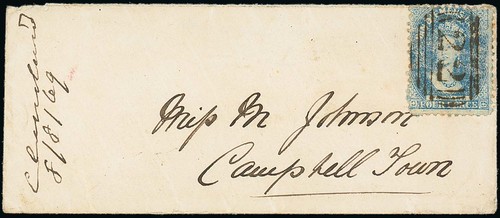 8/8/69
Miss M Johnson
Campbell Town
22
FOUR PENCE